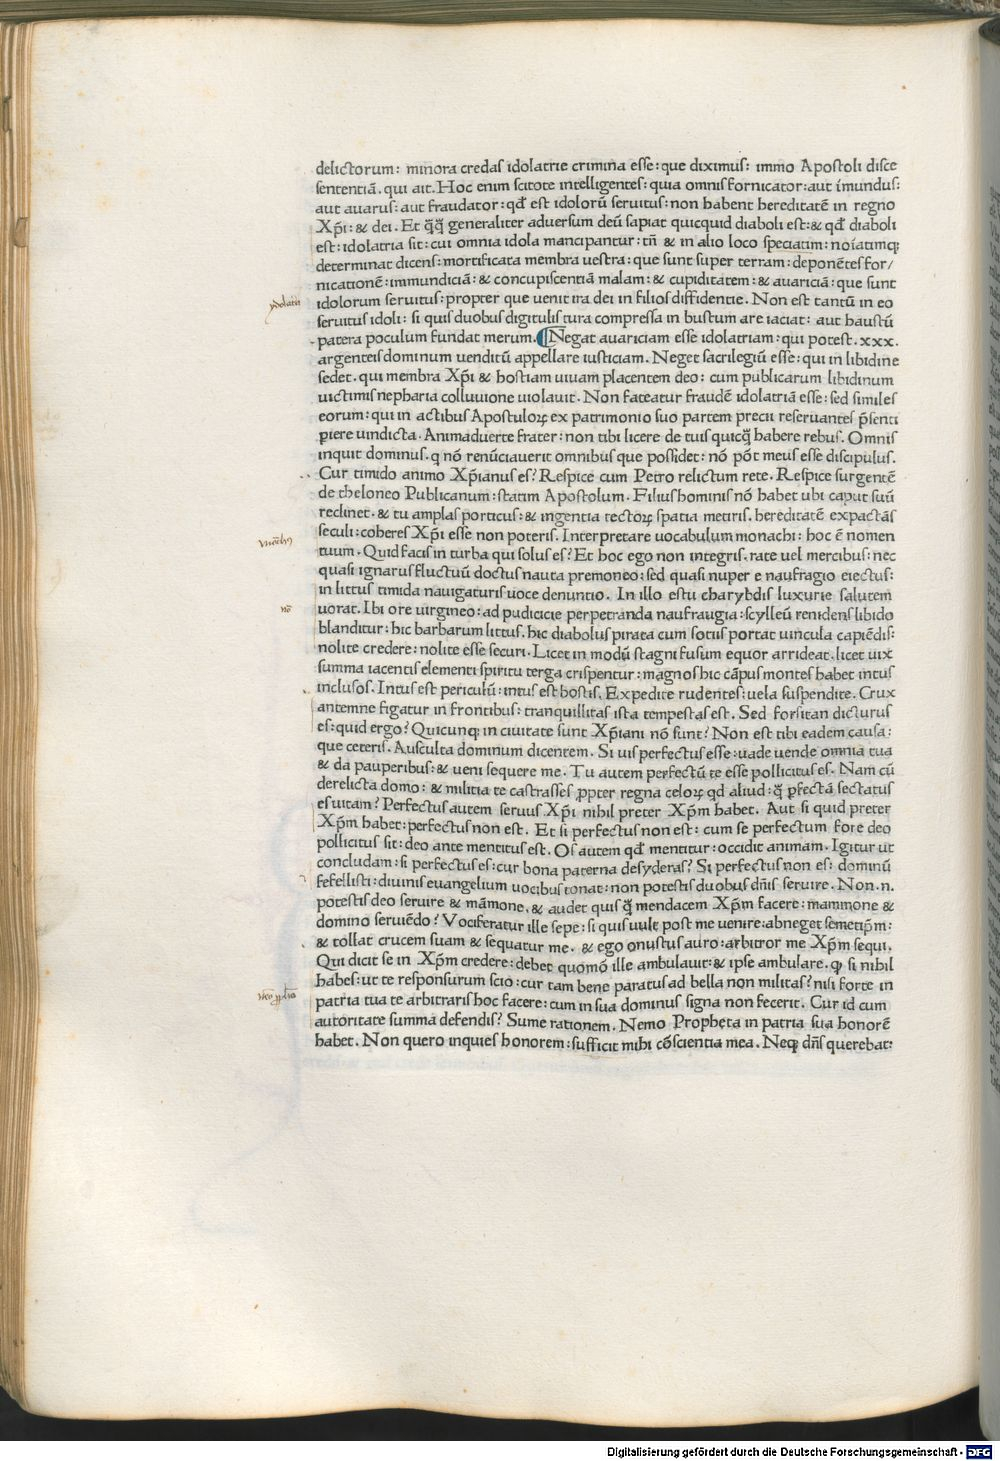 delictorum: minora credas idolatrie crimina esse: que diximus: immo Apostoli disce
sententiā. qui ait. Hoc enim scitote intelligentes: quia omnis fornicator: aut īmundus:
aut auarus: aut fraudator: qđ est idolorū seruitus: non habent hereditatē in regno
Xp̄i: & dei. Et q̄q̄ generaliter aduersum deū sapiat quicquid diaboli est: & qđ diaboli
est: idolatria sit: cui omnia idola mancipantur: tn̄ & in alio loco speciatim: noīatimqȝ
determinat dicens: mortificata membra uestra: que sunt super terram: deponētes for/
nicationē: immundiciā: & concupiscentiā malam: & cupiditatem: & auariciā: que sunt
ydolatria
idolorum seruitus: propter que uenit ira dei in filios diffidentie. Non est tantū in eo
seruitus idoli: si quis duobus digitulis tura compressa in bustum are iaciat: aut haustū
patera poculum fundat merum. ¶ Negat auariciam esse idolatriam: qui potest .xxx.
argenteis dominum uenditū appellare iusticiam. Neget sacrilegiū esse: qui in libidine
sedet. qui membra Xp̄i & hostiam uiuam placentem deo: cum publicarum libidinum
uictimis nepharia colluuione uiolauit. Non fateatur fraudē idolatriā esse: sed similes
eorum: qui in actibus Apostuloꝝ ex patrimonio suo partem precii reseruantes p̄senti
piere uindicta. Animaduerte frater: non tibi licere de tuis quicq̄ habere rebus. Omnis
inquit dominus. q nō renūciauerit omnibus que possidet: nō pōt meus esse discipulus.
Cur timido animo Xp̄ianus es? Respice cum Petro relictum rete. Respice surgentē
de theloneo Publicanum: statim Apostolum. Filius hominis nō habet ubi caput suū
reclinet. & tu amplas porticus: & ingentia tectoꝝ spatia metiris. hereditatē expactās
seculi: coheres Xp̄i esse non poteris. Interpretare uocabulum monachi: hoc ē nomen
tuum. Quid facis in turba qui solus es? Et hoc ego non integris. rate uel mercibus: nec
quasi ignarus fluctuū doctus nauta premoneo: sed quasi nuper e naufragio eiectus:
in littus timida nauigaturis uoce denuntio. In illo estu charybdis luxurie salutem
uorat. Ibi ore uirgineo: ad pudicicie perpetranda naufraugia: scylleū renidens libido
blanditur: hic barbarum littus. hic diabolus pirata cum sotiis portat uincula capiēdis:
nolite credere: nolite esse securi. Licet in modū stagni fusum equor arrideat. licet uix
summa iacentis elementi spiritu terga crispentur: magnos hic cāpus montes habet intus
inclusos. Intus est periculū: intus est hostis. Expedite rudentes: uela suspendite. Crux
antemne figatur in frontibus: tranquillitas ista tempestas est. Sed forsitan dicturus
es: quid ergo? Quicunqȝ in ciuitate sunt Xp̄iani nō sunt? Non est tibi eadem causa:
que ceteris. Ausculta dominum dicentem. Si uis perfectus esse: uade uende omnia tua
& da pauperibus: & ueni sequere me. Tu autem perfectū te esse pollicitus es. Nam cū
derelicta domo: & militia te castrasses ꝓpter regna celoꝝ qd aliud: q̄ ꝑfectā sectatus
es uitam? Perfectus autem seruus Xp̄i nihil preter Xp̄m habet. Aut si quid preter
Xp̄m habet: perfectus non est. Et si perfectus non est: cum se perfectum fore deo
pollicitus sit: deo ante mentitus est. Os autem qđ mentitur: occidit animam. Igitur ut
concludam: si perfectus es: cur bona paterna desyderas? Si perfectus non es: dominū
fefellisti: diuinis euangelium uocibus tonat: non potestis duobus dn̄is seruire. Non .n.
potestis deo seruire & māmone. & audet quis q̄ mendacem Xp̄m facere: mammone &
domino seruiēdo? Vociferatur ille sepe: si quis uult post me uenire: abneget semetip̄m:
& tollat crucem suam & sequatur me. & ego onustus auro: arbitror me Xp̄m sequi.
Qui dicit se in Xp̄m credere: debet quomō ille ambulauit: & ipse ambulare. ꝙ si nihil
habes: ut te responsurum scio: cur tam bene paratus ad bella non militas? nisi forte in
patria tua te arbitraris hoc facere: cum in sua dominus signa non fecerit. Cur id cum
autoritate summa defendis? Sume rationem. Nemo Propheta in patria sua honorē
habet. Non quero inquies honorem: sufficit mihi cōscientia mea. Neqȝ dn̄s querebat:
Digitalisierung gefördert durch die Deutsche Forschungsgemeinschaft - DFG